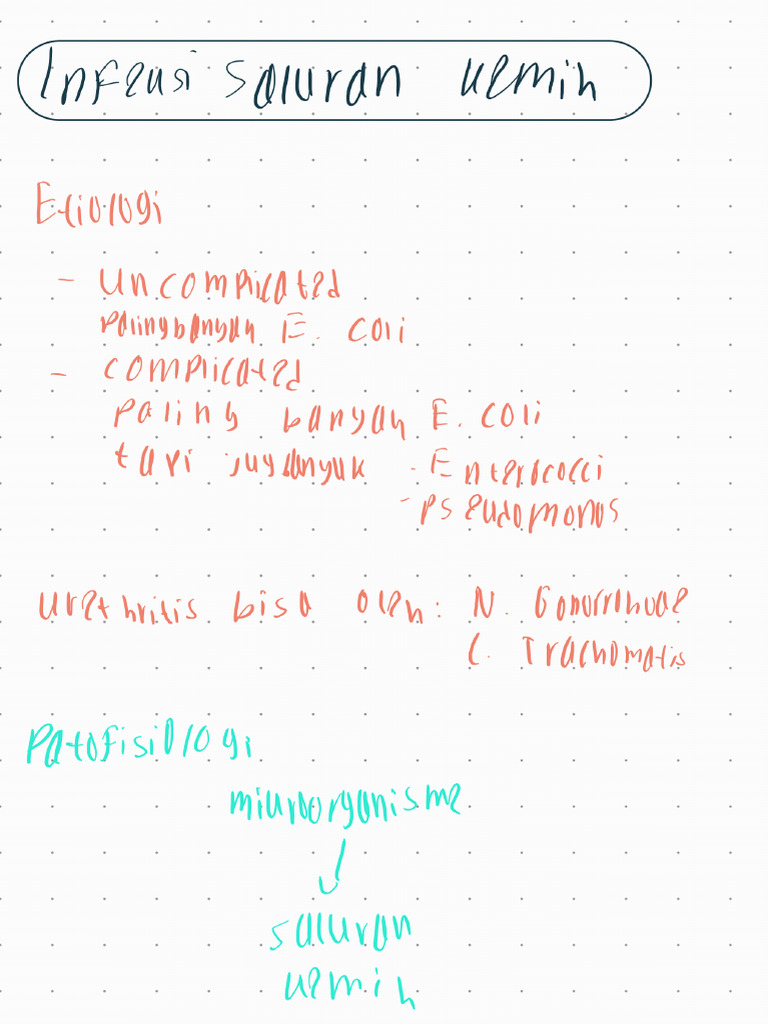 Infeksi saluran kemih
Etiologi
- Uncomplicated
paling banyak E. coli
- complicated
paling banyak E. coli
tapi juga banyak - Enterococci
- Pseudomonas
Urethritis bisa oleh: N. Gonorrhoae
C. Trachomatis
Patofisiologi
mikroorganisme
↓
saluran
kemih